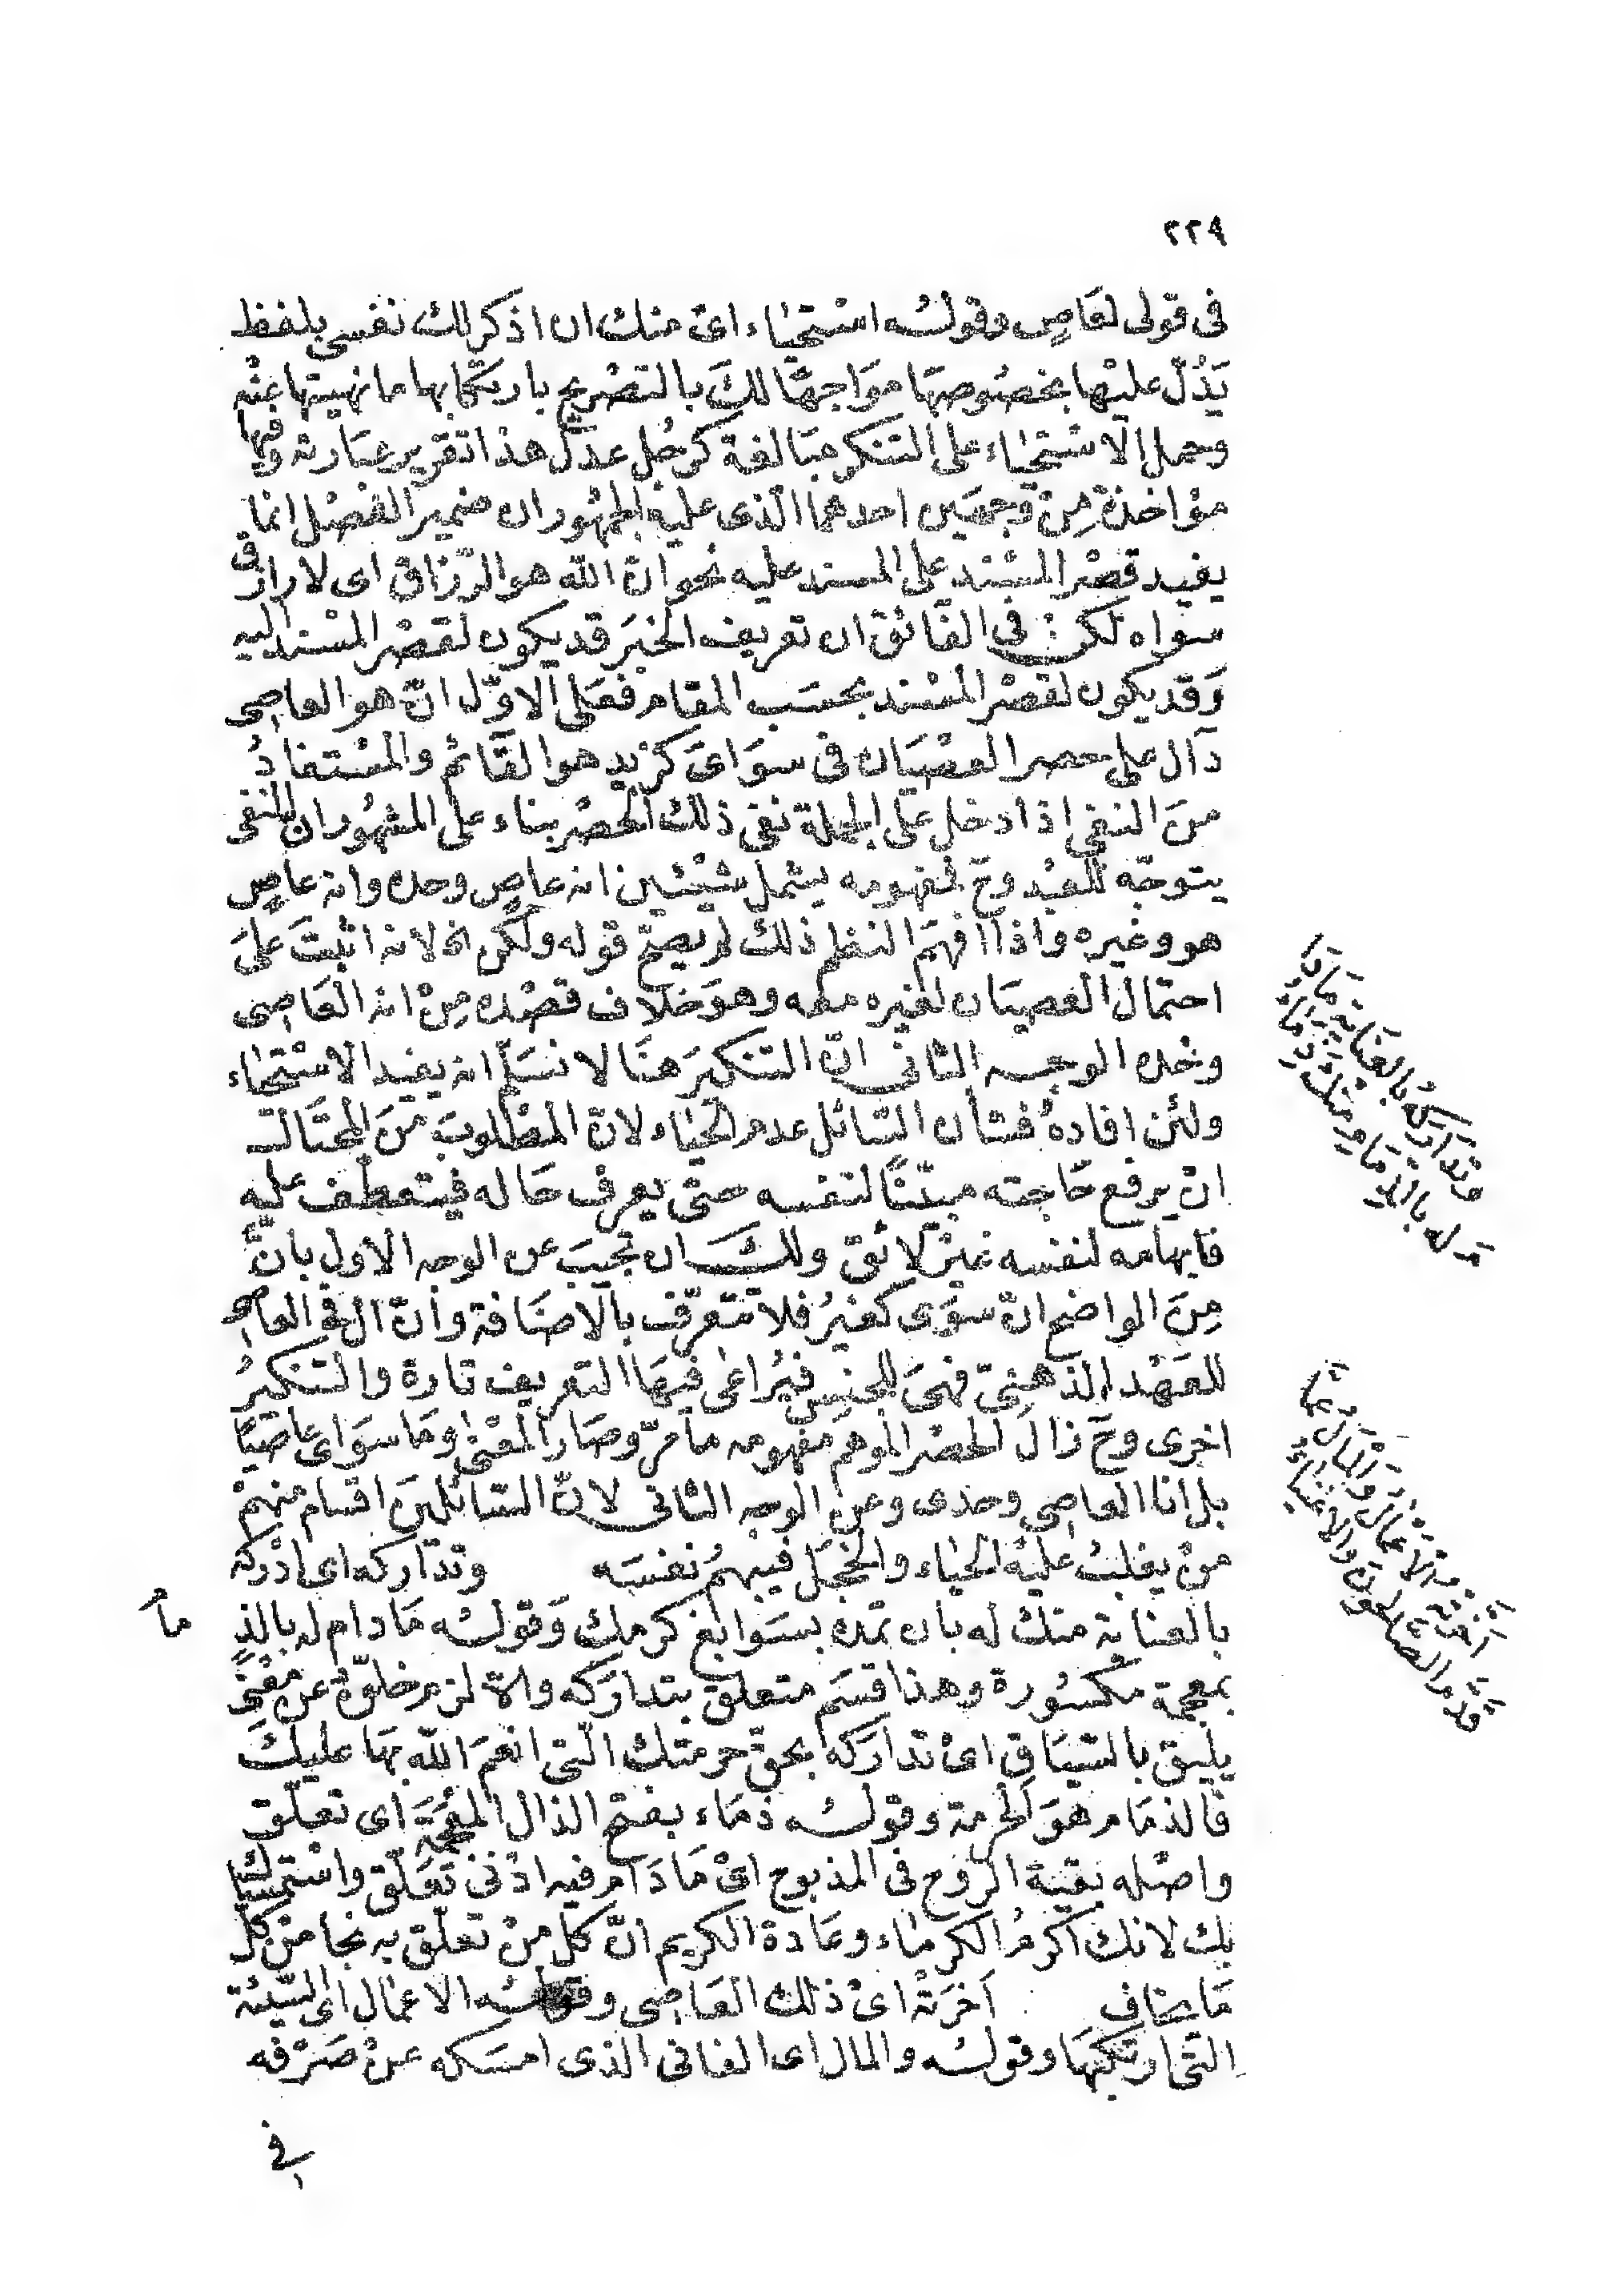 ٢٢٩
فى قولى لعَاصٍ وقولُه اسْتحيٰاء اىْ منك ان اذكر لك نفسى بلفظ
يَدُلّ عليْها بخصُوصهَا موَاجهًا لكَ بالتصْريح بارتكابها ما نهيتها عنْه
وحمل الاسْتحيٰاء على التنكر مبَالغة كرجُل عدْل هذا تقرير عبَارته وفيها
مؤاخذة مِنْ وَجهَين احدهما الّذى عليه الجمْهُور ان ضمير الفصْل انمٰا
يفيد قصْر المسْند على المسند عليه نحو انّ اللّه هو الرّزاق اى لا رازق
سوَاه لكنْ فى الفَائق ان تعريف الخبَر قد يكون لقصْر المسْند اليه
وَقد يكون لقصْر المسْند بحسَب المقام فعَلى الاوّل انّ هو العاصِى
دَآل على حصر العصْيَان فى سوَاىَ كزيد هو القَائم والمسْتفادُ
منَ النفى اذا دخل على الجملة نفى ذلك الحصْر بناء على المشهُور ان النفى
يتوجّه للقيْد وحَ فمفهومه يشمل شيْئين انه عاصٍ وحده وانه عاصٍ
هو وغيره واذا افهمَ النظم ذلك لم يصحّ قوله ولكن الخ لانه اثبتَ علىَ
احتمال العصيَان لغيره معه وهوَ خلاف قصْده مِنْ انه العَاصِى
وحْده الوجه الثانى انّ التنكيرَ هنَا لا نسَلّم انه يفيد الاسْتحيٰاء
ولئن افادهُ فشان السّائل عدم الحيٰاء لانّ المطْلوبَ منَ المحتَاك
انْ يرفع حَاجته مبيّنًا لنفسه حتى يعرف حَاله فيتعطف عليه
فابهامه لنفسه غيْر لائق ولكَ ان تجيبَ عن الوجه الاول بانّ
مِنَ الواضح انّ سوَى كغيرُ فلا تتعرّف بالاضَافة وانّ ال فى العاصى
للعَهْد الذهنِىّ فهىَ للجنِسْ فيُراعٰى فيهَا التعريف تارة والتنكيرُ
اخرى وحَ زال الحصْر الموهم مفهومه ما مرّ وصَار المعْنٰى ومَا سوَاى عَاصيًا
بل انا العاصى وحدى وعن الوجه الثانى لانّ السّائلينَ اقسام منهمْ
منْ يغلبُ عليْه الحيٰاء والخجَل فيبهمُ نفسَه وتدَاركه اى ادْركه
بالعنَاية منك له بان تمدّه بسَوابغ كرمك وَقولُه مَا دام له بالذِ مَا
بمعجمة مكسُورة وهذا قسَم متعلّق بتدارَكه والاّ لزم خلوّهُ عن معْنى
يليق بالسّيَاق اىْ تدارَكه بحقّ حرمتك الّتى انعمَ اللّه بهَا عليكَ
فالذمَام هوَ الحرمة وقولُه ذمَاء بفتح الذال المعْجمَة اى تعلّق
واصْله بقية الرّوح فى المذبوح اىْ مَا دَام فيه ادْنى تعَلّق واسْتمسَاك
بك لانك اكرمُ الكرمٰاء وعَادة الكريم انّ كلّ منْ تعلّق به نجا منْ كلّ
مَا يخاف اَخرَتهْ اىْ ذلك العَاصِى وقولُه الاعمٰال اى السّيئة
الّتى ارتكبَهَا وقولُه والمال اى الفانى الذى امسَكه عنْ صَرْفه
فى
وتدَاركهُ بالعنَايَة مَا دَا
مَ له بالذِّمَام منْكَ ذمَاءُ
أَخّرَتْهُ الأعْمَالُ وَالْمَالُ عَمَّا
قَدّمَ الصَّالحُونَ وَالأغْنيَاءُ